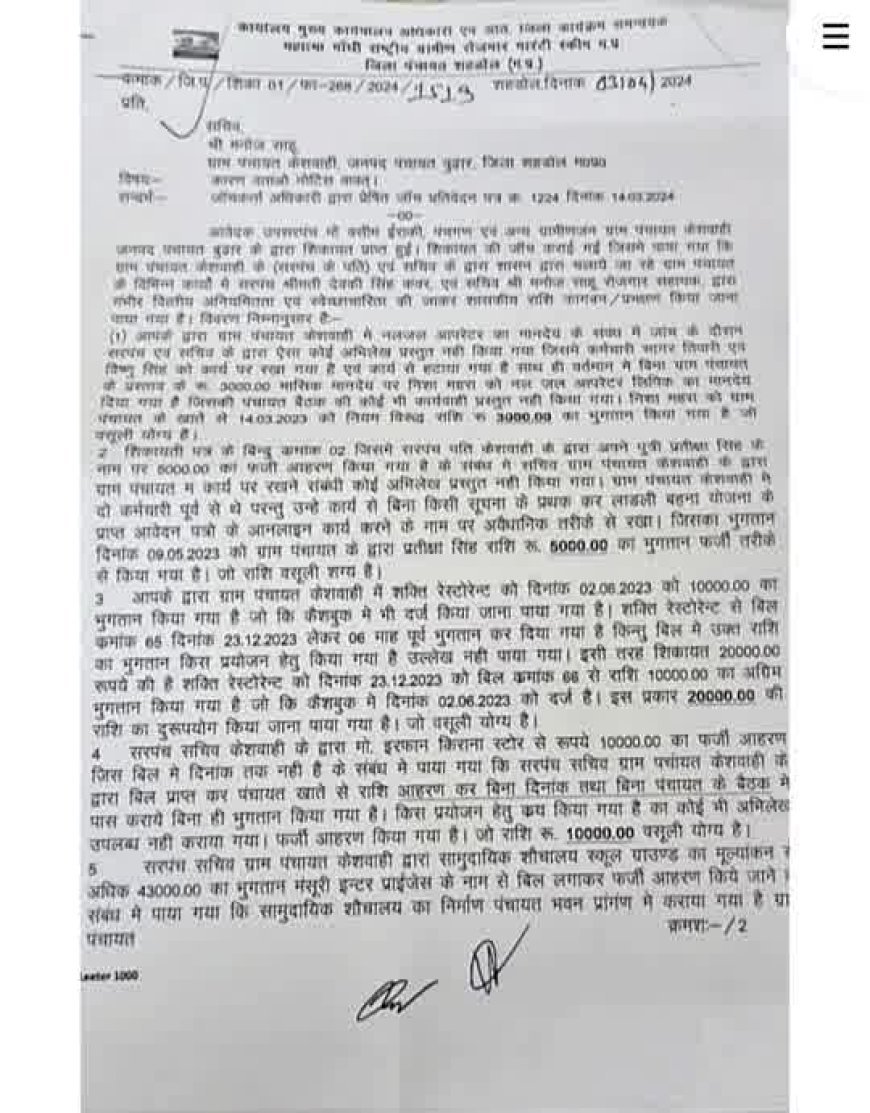 कार्यालय मुख्य कार्यपालन अधिकारी एवं अति. जिला कार्यक्रम समन्वयक
महात्मा गाँधी राष्ट्रीय ग्रामीण रोजगार गारंटी स्कीम म.प्र
जिला पंचायत शहडोल (म.प्र.)
क्रमांक / जि.पं / शिका 01 / फा-268 / 2024 / 1519 शहडोल,दिनांक 03/04/2024
प्रति,
सचिव,
श्री मनोज साहू,
ग्राम पंचायत केशवाही, जनपद पंचायत बुढार, जिला शहडोल म0प्र0
विषयः– कारण बताओ नोटिस बावत्।
सन्दर्भ– जॉचकर्ता अधिकारी द्वारा प्रेषित जॉच प्रतिवेदन पत्र क्र. 1224 दिनांक 14.03.2024
–00–
आवेदक उपसरपंच मो वसीम ईराकी, पंचगण एवं अन्य ग्रामीणजन ग्राम पंचायत केशवाही
जनपद पंचायत बुढार के द्वारा शिकायत प्राप्त हुई। शिकायत की जॉच कराई गई जिसमे पाया गया कि
ग्राम पंचायत केशवाही के (सरपंच के पति) एवं सचिव के द्वारा शासन द्वारा चलाये जा रहे ग्राम पंचायत
के विभिन्न कार्यों मे सरपंच श्रीमती देवकी सिंह कंवर, एवं सचिव श्री मनोज साहू रोजगार सहायक, द्वारा
गंभीर वित्तीय अनियमितता एवं स्वेच्छाचारिता की जाकर शासकीय राशि का गबन/प्रभक्षण किया जाना
पाया गया है। विवरण निम्नानुसार हैः–
(1) आपके द्वारा ग्राम पंचायत केशवाही मे नलजल आपरेटर का मानदेय के संबंध मे जांच के दौरान
सरपंच एवं सचिव के द्वारा ऐसा कोई अभिलेख प्रस्तुत नही किया गया जिसमे कर्मचारी सागर तिवारी एवं
विष्णु सिंह को कार्य पर रखा गया है एवं कार्य से हटाया गया है साथ ही वर्तमान मे बिना ग्राम पंचायत
के प्रस्ताव के रू. 3000.00 मासिक मानदेय पर निशा महरा को नल जल आपरेटर लिपिक का मानदेय
दिया गया है जिसकी पंचायत बैठक की कोई भी कार्यवाही प्रस्तुत नही किया गया। निशा महरा को ग्राम
पंचायत के खाते से 14.03.2023 को नियम विरूद्ध राशि रू 3000.00 का भुगतान किया गया है जो
वसूली योग्य है।
2 शिकायती पत्र के बिन्दु क्रमांक 02 जिसमे सरपंच पति केशवाही के द्वारा अपने पुत्री प्रतीक्षा सिंह के
नाम पर 5000.00 का फर्जी आहरण किया गया है के संबंध मे सचिव ग्राम पंचायत केशवाही के द्वारा
ग्राम पंचायत म कार्य पर रखने संबंधी कोई अभिलेख प्रस्तुत नही किया गया। ग्राम पंचायत केशवाही मे
दो कर्मचारी पूर्व से थे परन्तु उन्हे कार्य से बिना किसी सूचना के प्रथक कर लाडली बहना योजना के
प्राप्त आवेदन पत्रो के आनलाइन कार्य करने के नाम पर अवैधानिक तरीके से रखा। जिसका भुगतान
दिनांक 09.05.2023 को ग्राम पंचायत के द्वारा प्रतीक्षा सिंह राशि रू. 5000.00 का भुगतान फर्जी तरीके
से किया गया है। जो राशि वसूली योग्य है।
3 आपके द्वारा ग्राम पंचायत केशवाही मे शक्ति रेस्टोरेन्ट को दिनांक 02.06.2023 को 10000.00 का
भुगतान किया गया है जो कि कैशबुक मे भी दर्ज किया जाना पाया गया है। शक्ति रेस्टोरेन्ट से बिल
क्रमांक 65 दिनांक 23.12.2023 लेकर 06 माह पूर्व भुगतान कर दिया गया है किन्तु बिल मे उक्त राशि
का भुगतान किस प्रयोजन हेतु किया गया है उल्लेख नही पाया गया। इसी तरह शिकायत 20000.00
रूपये की है शक्ति रेस्टोरेन्ट को दिनांक 23.12.2023 को बिल क्रमांक 66 से राशि 10000.00 का अग्रिम
भुगतान किया गया है जो कि कैशबुक मे दिनांक 02.06.2023 को दर्ज है। इस प्रकार 20000.00 की
राशि का दुरूपयोग किया जाना पाया गया है। जो वसूली योग्य है।
4 सरपंच सचिव केशवाही के द्वारा मो. इरफान किराना स्टोर से रूपये 10000.00 का फर्जी आहरण
जिस बिल मे दिनांक तक नही है के संबंध मे पाया गया कि सरपंच सचिव ग्राम पंचायत केशवाही के
द्वारा बिल प्राप्त कर पंचायत खाते से राशि आहरण कर बिना दिनांक तथा बिना पंचायत के बैठक मे
पास कराये बिना ही भुगतान किया गया है। किस प्रयोजन हेतु क्रय किया गया है का कोई भी अभिलेख
उपलब्ध नही कराया गया। फर्जी आहरण किया गया है। जो राशि रू. 10000.00 वसूली योग्य है।
5 सरपंच सचिव ग्राम पंचायत केशवाही द्वारा सामुदायिक शौचालय स्कूल ग्राउण्ड का मूल्यांकन स
अधिक 43000.00 का भुगतान मंसूरी इन्टर प्राईजेस के नाम से बिल लगाकर फर्जी आहरण किये जाने
संबंध मे पाया गया कि सामुदायिक शौचालय का निर्माण पंचायत भवन प्रांगण मे कराया गया है ग्रा
पंचायत
क्रमशः–/2
Leeter 1000